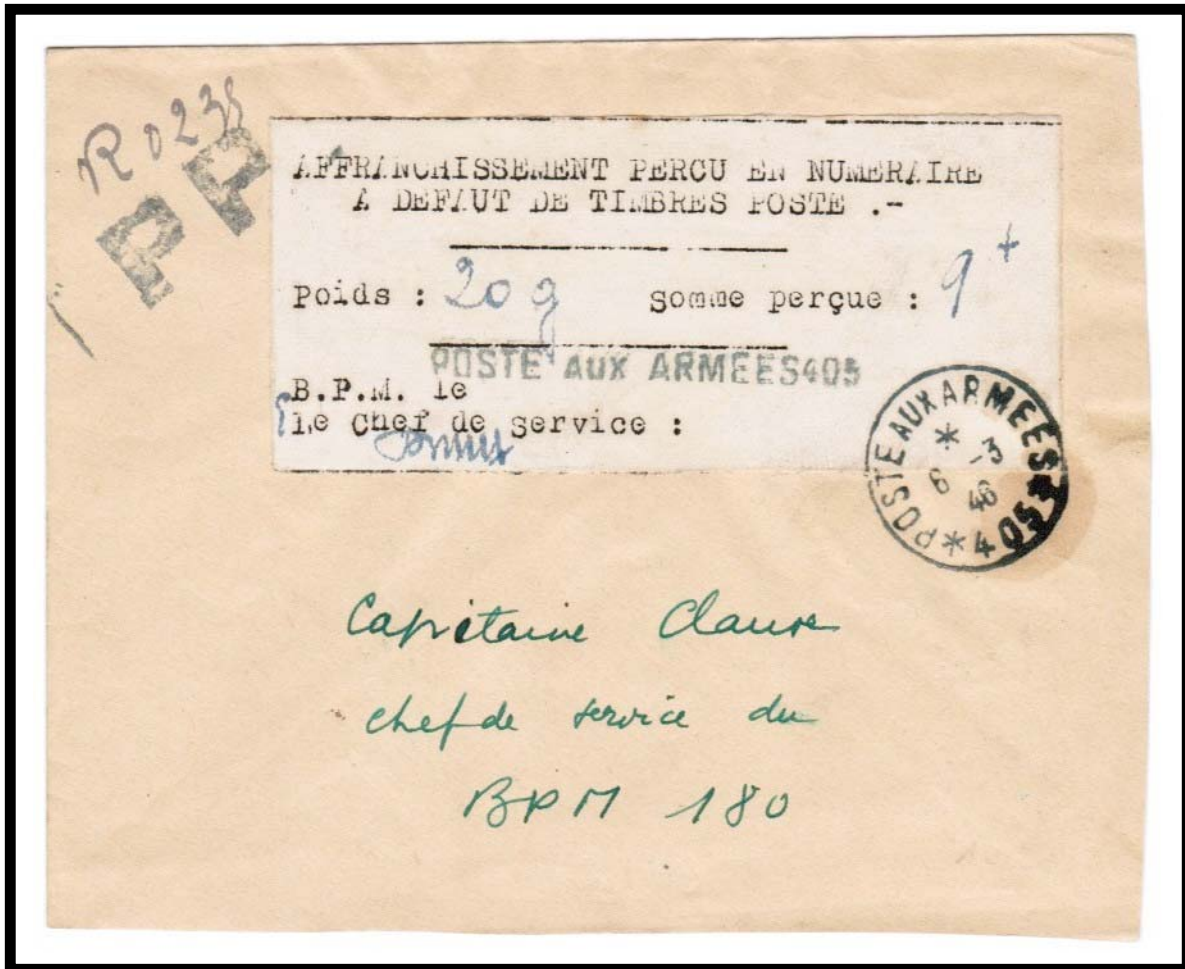 R 0238
P P
AFFRANCHISSEMENT PERCU EN NUMERAIRE
A DEFAUT DE TIMBRES POSTE .-
Poids : 20 g somme perçue : 9
POSTE AUX ARMEES405
B.P.M. le
Le Chef de service :
* POSTE AUX ARMEES * 405 *
* 6 -3 46
Capitaine Clause
chef de service du
BPM 180